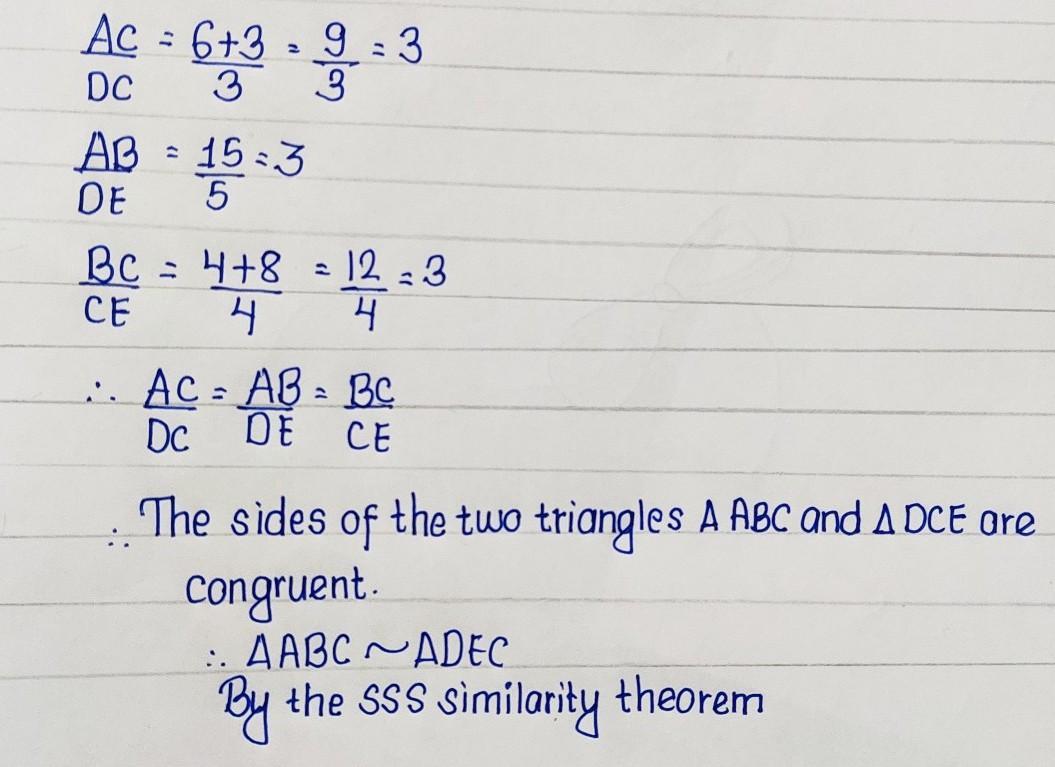 AC/DC = 6+3/3 = 9/3 = 3
AB/DE = 15/5 = 3
BC/CE = 4+8/4 = 12/4 = 3
∴ AC/DC = AB/DE = BC/CE
∴ The sides of the two triangles Δ ABC and Δ DCE are
congruent.
∴ ΔABC ~ ΔDEC
By the SSS similarity theorem